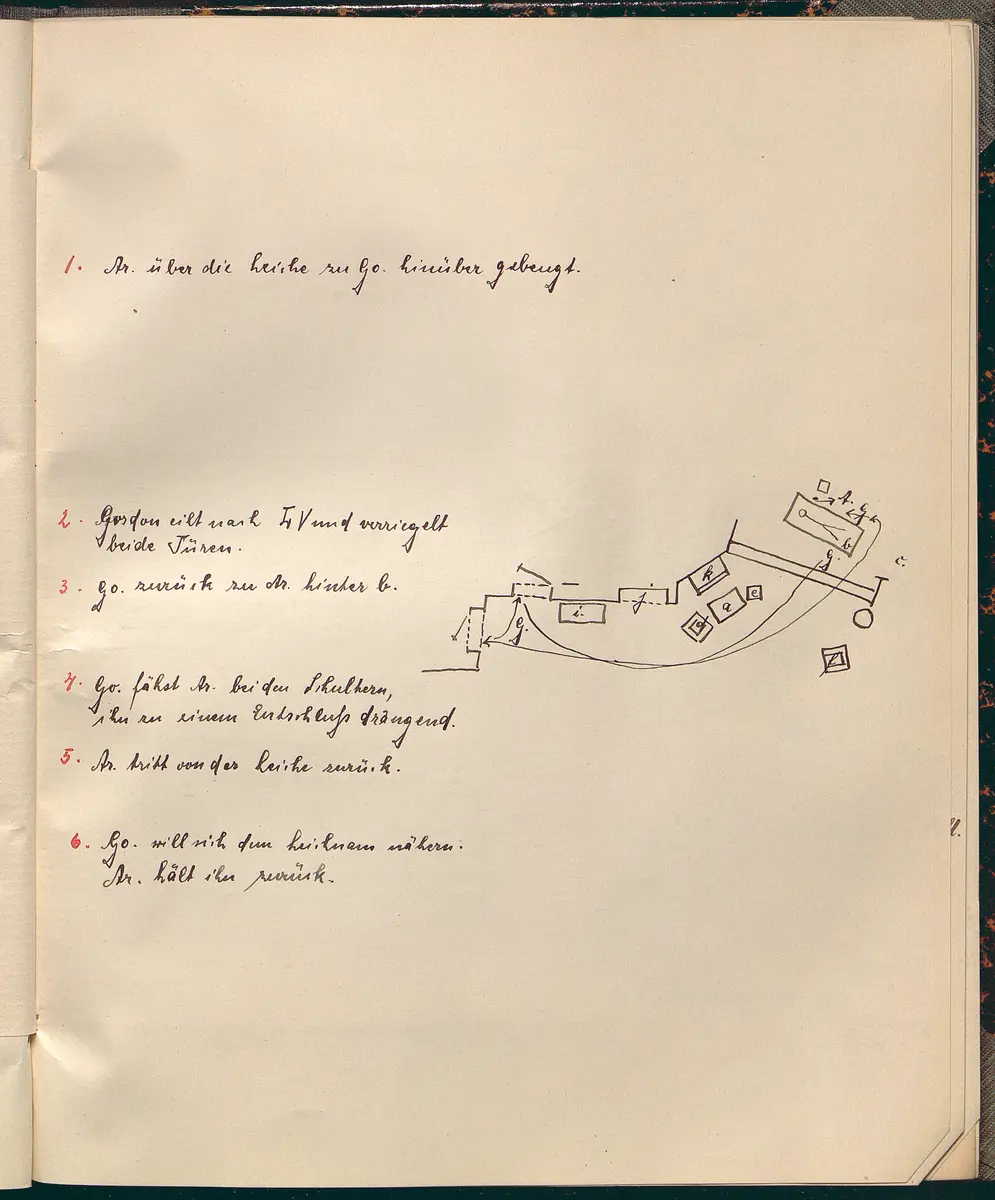 1. Ar. über die Leiche zu Go. hinüber gebeugt.
2. Gordon eilt nach IV und verriegelt
beide Türen.
3. Go. zurück zu Ar. hinter b.
4. Go. faßt Ar. bei den Schultern,
ihn zu einem Entschluß drängend.
5. Ar. tritt von der Leiche zurück.
6. Go. will sich dem Leichnam nähern.
Ar. hält ihn zurück.
A.
b
G.
c.
k
e
a
j
i.
G.
d